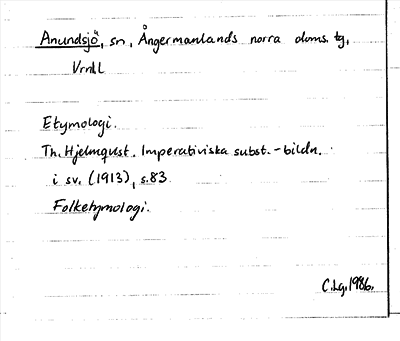 Anundsjö, sn, Ångermanlands norra doms. tg,
Vrnl L
Etymologi.
Th. Hjelmqvist. Imperativiska subst.-bildn.
i sv. (1913), s.83
Folketymologi.
C.Lg. 1986.